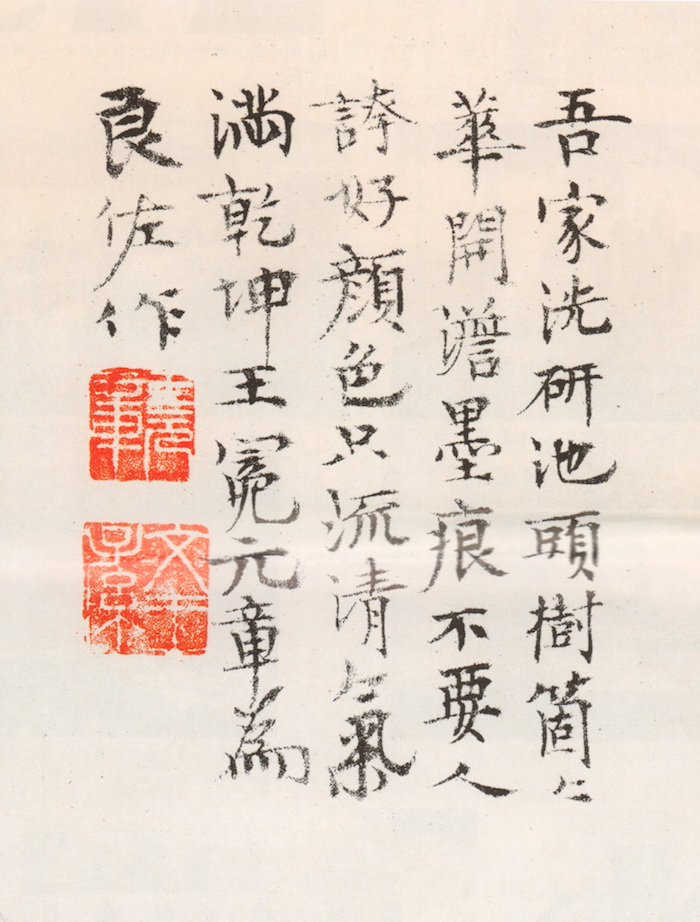 吾家洗研池頭樹箇〻
華開澹墨痕不要人
誇好顔色只流清氣
滿乾坤王冕元章為
良佐作
文王子孫